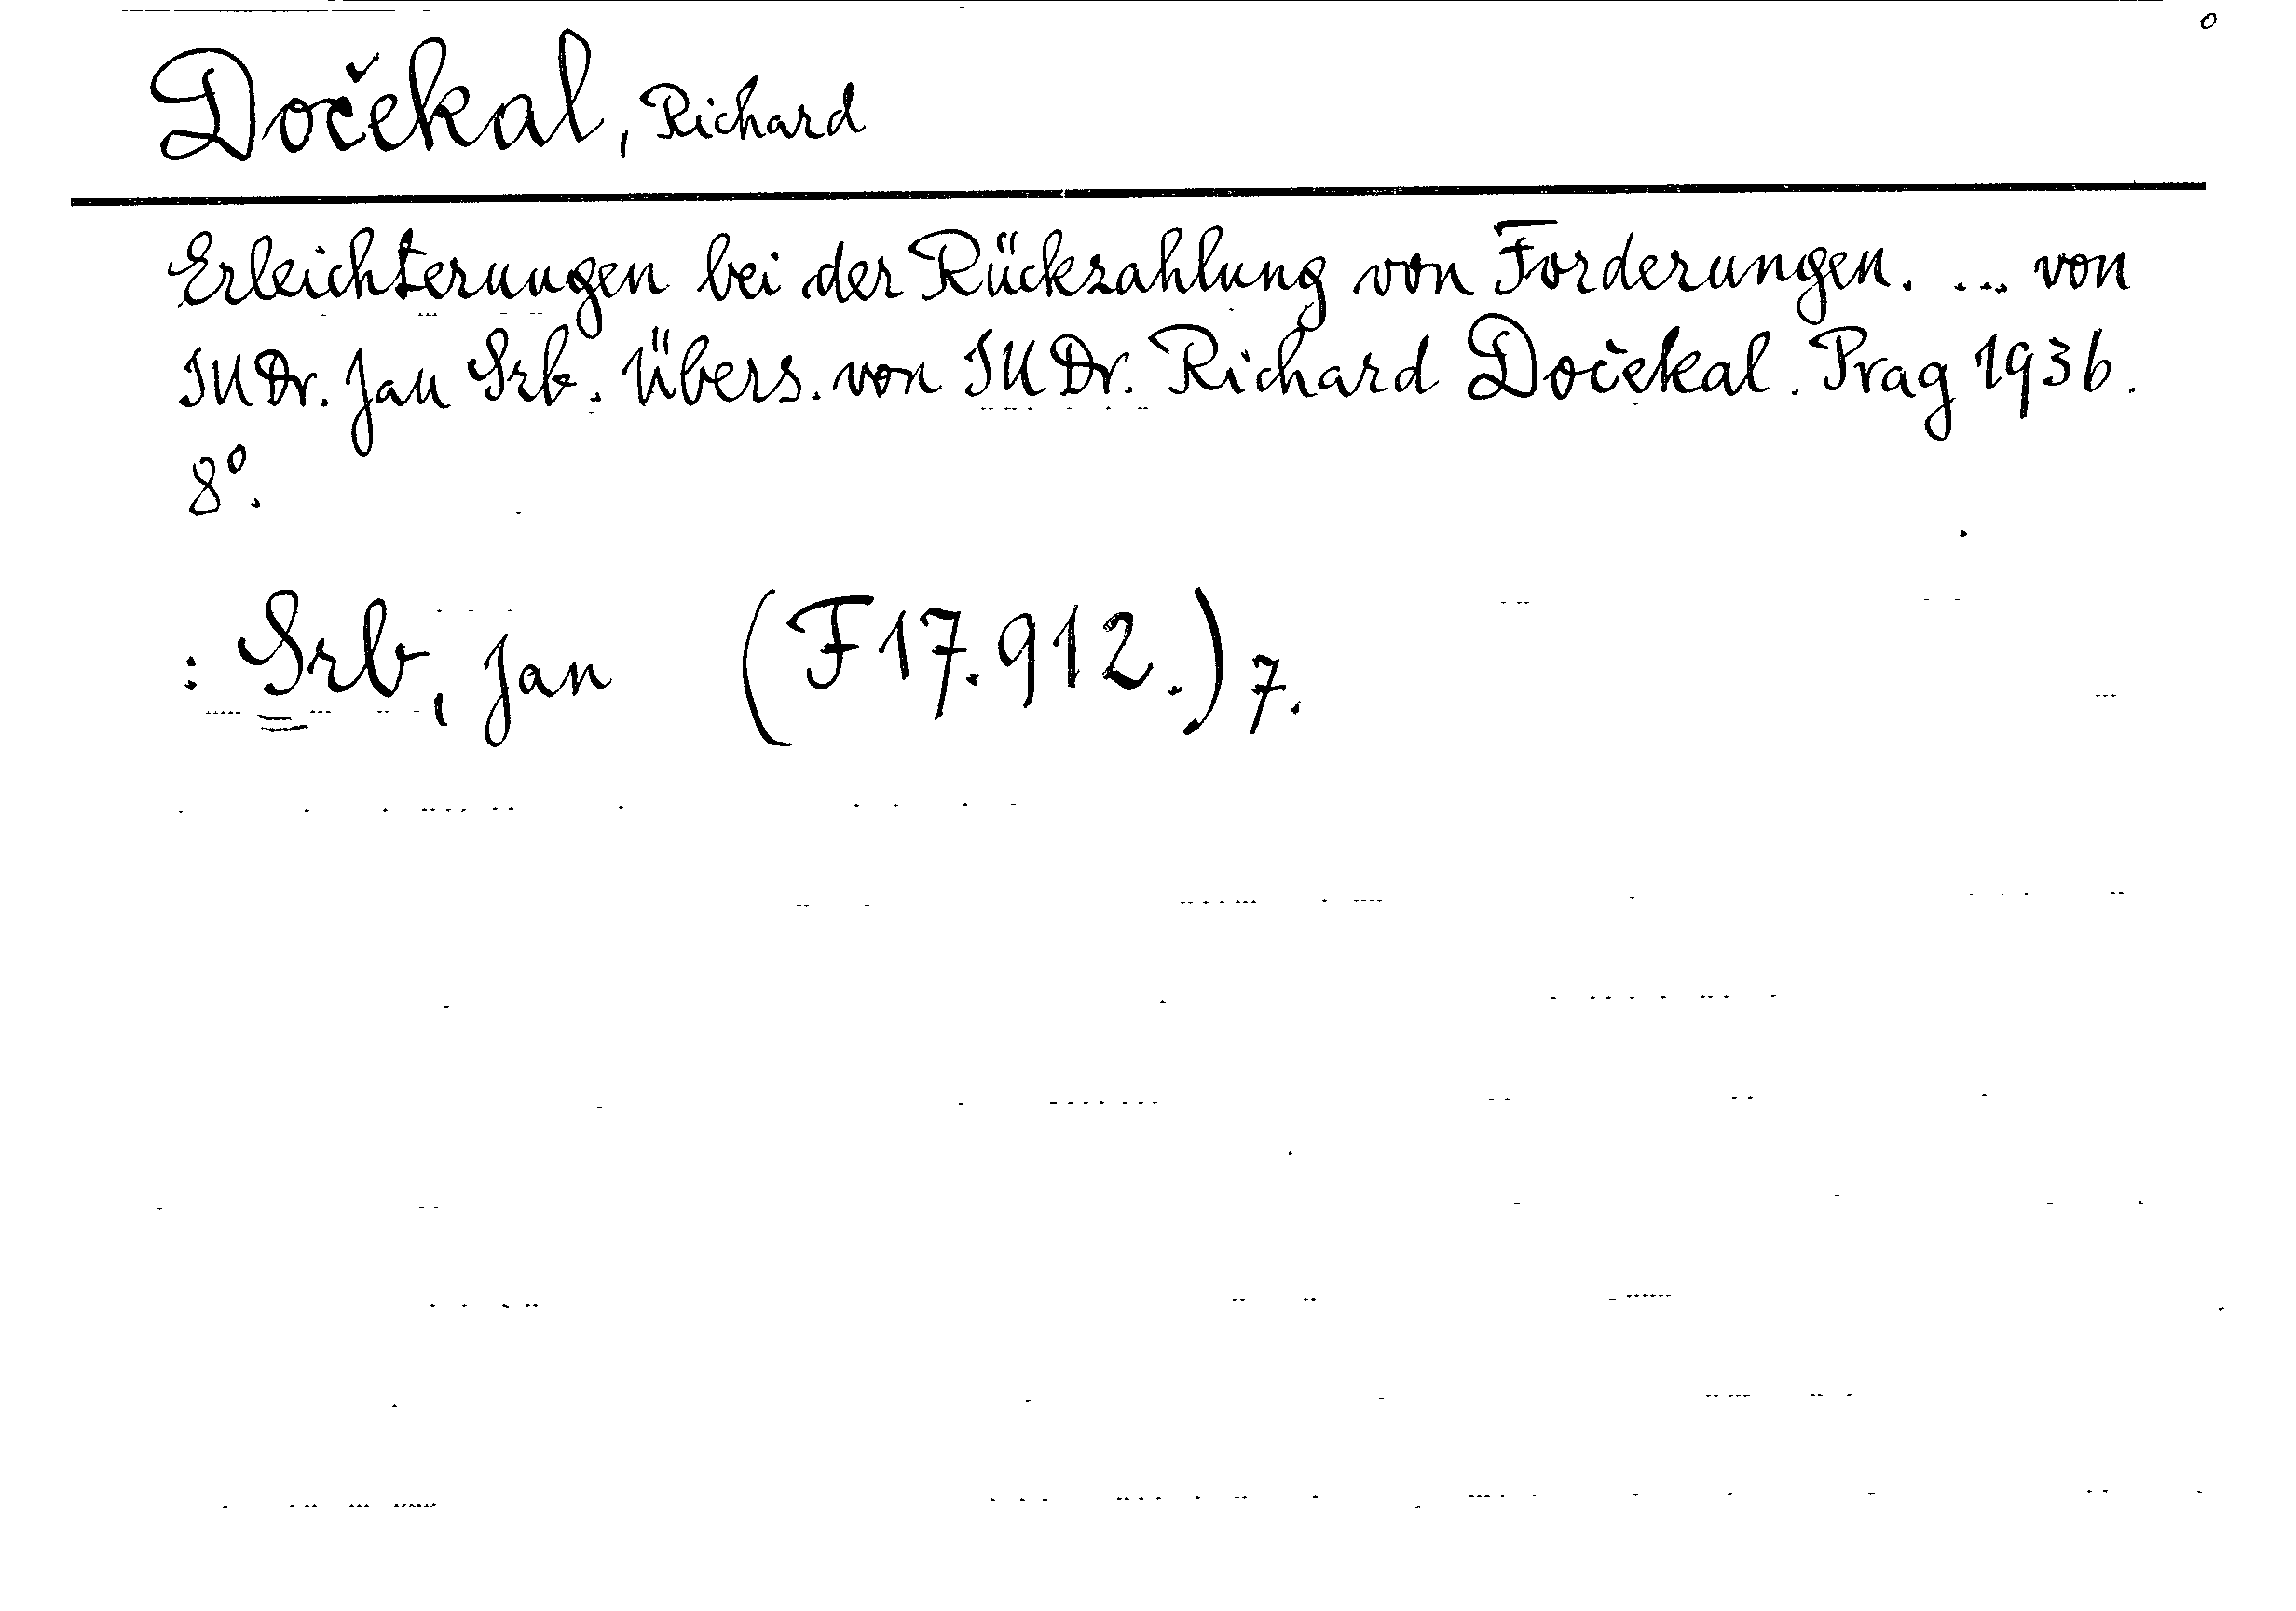 o
Dočekal, Richard
Erleichterungen bei der Rückzahlung von Forderungen. ... von
JUDr. Jan Srb. Übers. von JUDr. Richard Dočekal. Prag 1936.
8°.
: Srb, Jan (F17.912.)7.